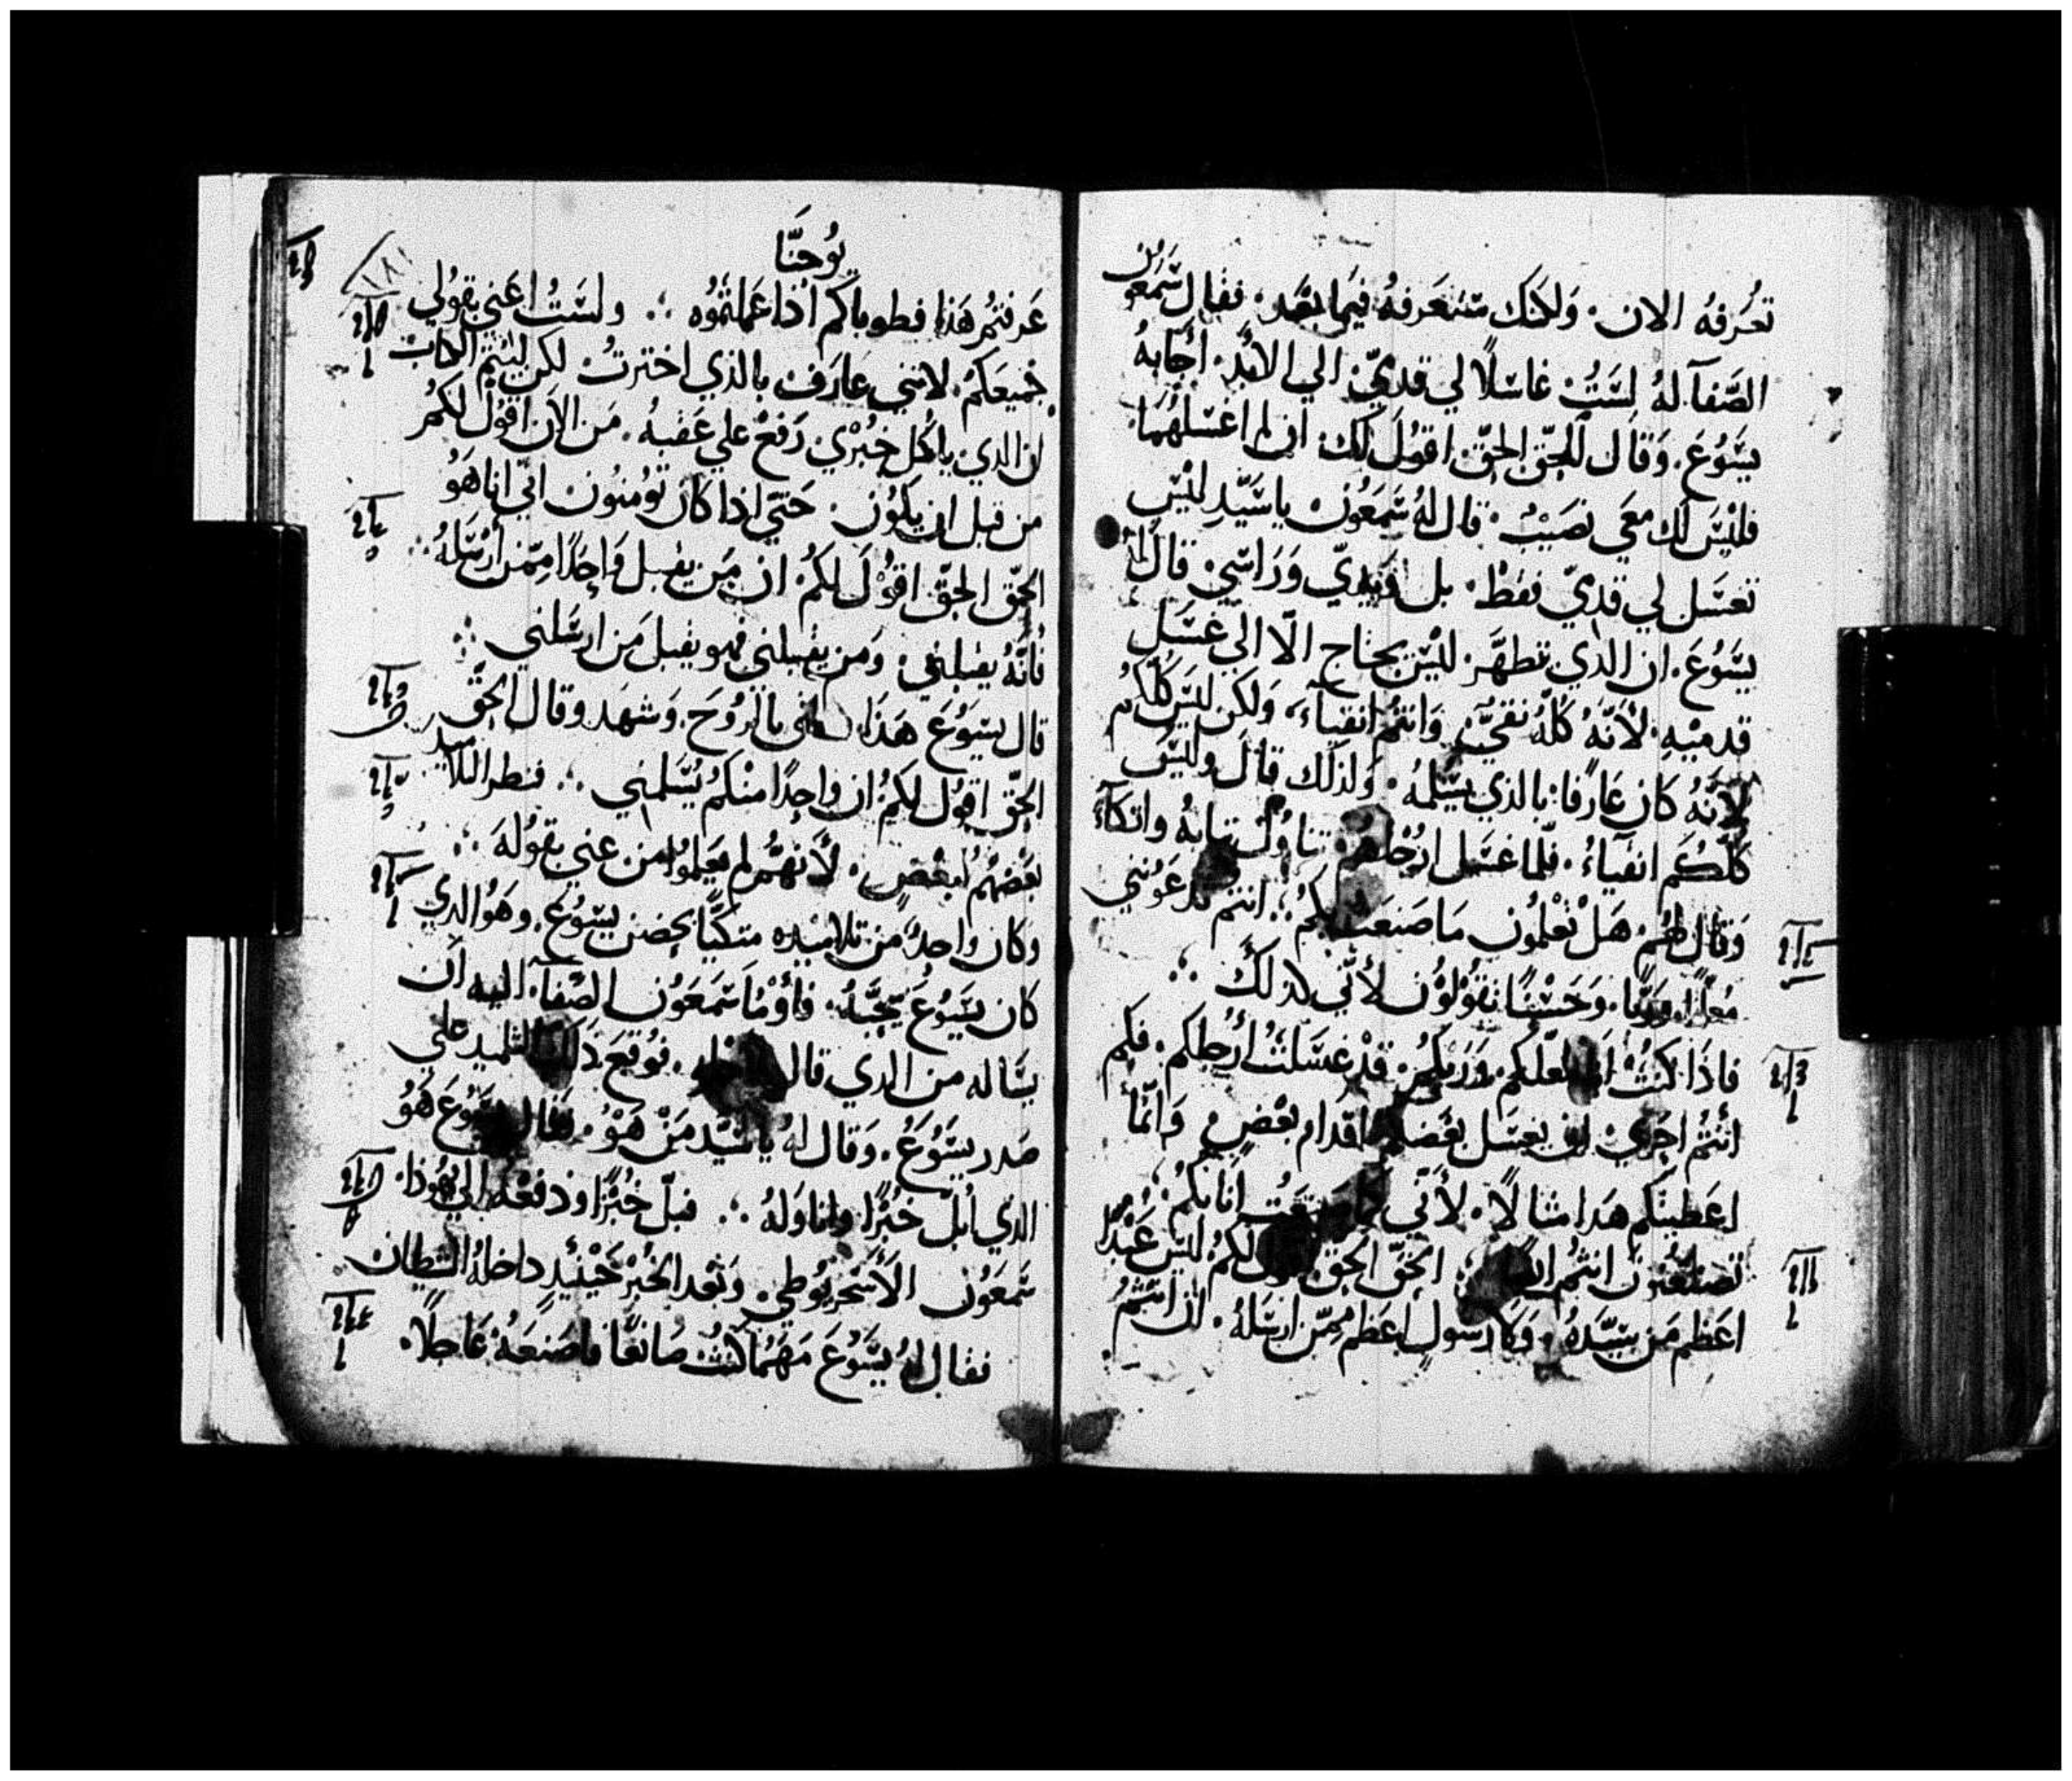 تعرفه الان. ولكنك ستعرفه فيما بعد. فقال شمعون
الصَّفا له لست غاسلًا لي قدميّ الي الابد. أجابه
يسوع. وقال الحق الحق اقول لك ان لم اغسلهما
فليس لك معي نصيب. قال له شمعون يا سيد ليس
تغسل لي قدميّ فقط. بل ويديّ وراسي. قال له
يسوع. ان الذي تطهر. ليس يحتاج الّا الي غسل
قدميه. لأنّه كلّه نقيّ. وانتم انقياء، ولكن ليس كلكم
لأنّه كان عارفا بالذي يسلمه. ولذلك قال وليس
كلّكم انقياء. فلمّا غسل ارجلهم تناول ثيابه واتكاء
وقال لهم. هل تعلمون ما صنعت بكم؛ انتم تدعونني
معلمًا وربّا. وحسنًا تقولون لأنّي كذلك
فاذا كنت انا معلّمكم وربكم. قد غسلت أرجلكم. فكم
انتم احري ان يغسل بعضكم اقدام بعض وانّما
اعطيتكم هذا مثالًا. لأنّي كما صنعت انا بكم
تصنعون انتم الحق الحق اقول لكم ليس عبدًا
اعظم من سيّده. ولا رسول اعظم ممّن ارسله. ان انتم
يُوحنَّا
١٨١
عرفتم هذا فطوباكم اذا عملتموه. ولست اعني بقولي
جميعكم. لانني عارف بالذي اخترت لكن ليتم الكتاب
ان الذي ياكل خبزي رفع علي عقبه. من الان اقول لكم
من قبل ان يكون. حتي اذا كان تومنون انّي انا هو
الحقّ الحقّ اقول لكم. ان من يقبل واحدًا ممّن أرسله
فأنّه يقبلني. ومن يقبلني فهو يقبل من ارسلني
قال يسوع هذا بالروح. وشهد وقال الحقّ
الحقّ اقول لكم ان واحدًا منكم يسلمني. فنظر التلاميد
بعضهم لبعض. لأنهم لم يعلموا من عني بقوله
وكان واحد من تلاميده متكيًا بحضن يسوع. وهو الدي
كان يسوع يحبّه. فأومأ شمعون الصّفا. اليه ان
يساله من الدي قال. فوقع دلك التلميد علي
صدر يسوع. وقال له يا سيد من هو. فقال يسوع هو
الدي أبلّ خبزًا واناوله. فبلّ خبزًا ودفعه الي يهودا.
شمعون الأسخريوطي. وبعد الخبز حينئد داخله الشيطان
فقال له يسوع مهما كنت صانعًا فاصنعه عاجلًا.